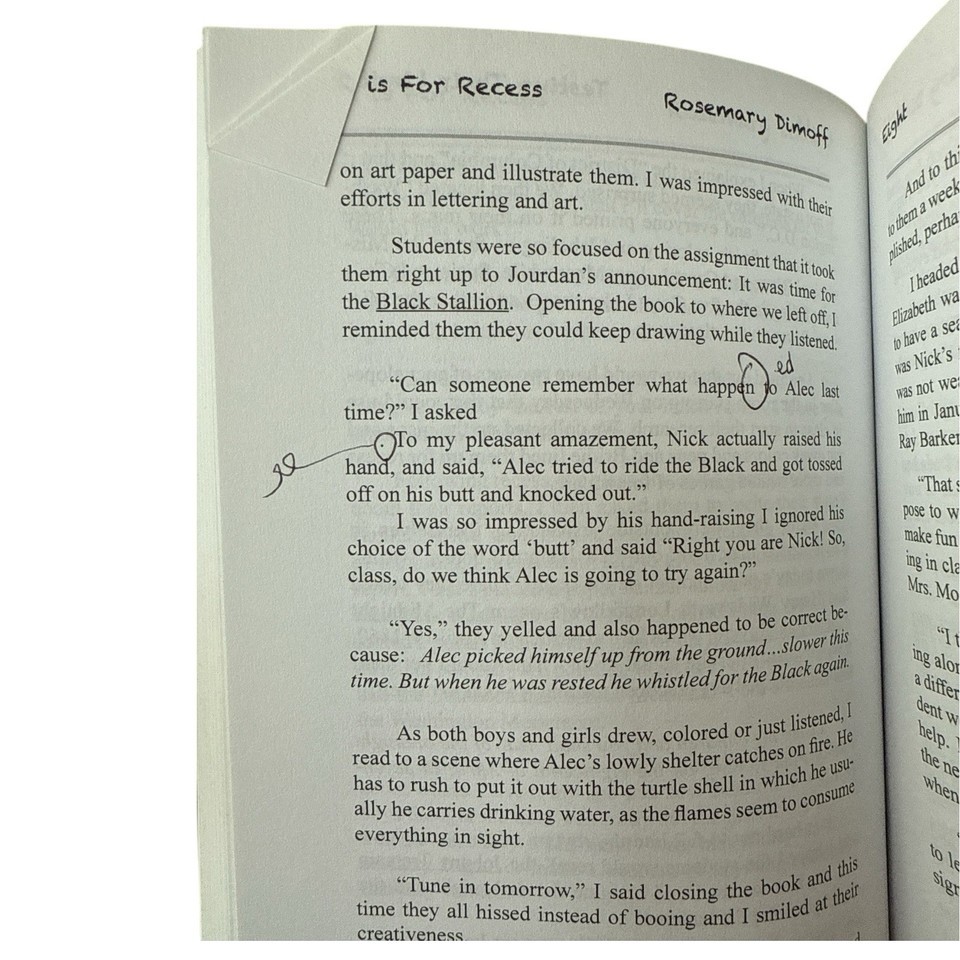 is For Recess
Rosemary Dimoff
on art paper and illustrate them. I was impressed with their
efforts in lettering and art.
Students were so focused on the assignment that it took
them right up to Jourdan’s announcement: It was time for
the Black Stallion. Opening the book to where we left off, I
reminded them they could keep drawing while they listened.
ed
“Can someone remember what happen to Alec last
time?” I asked
To my pleasant amazement, Nick actually raised his
hand, and said, “Alec tried to ride the Black and got tossed
off on his butt and knocked out.”
I was so impressed by his hand-raising I ignored his
choice of the word ‘butt’ and said “Right you are Nick! So,
class, do we think Alec is going to try again?”
“Yes,” they yelled and also happened to be correct be-
cause: Alec picked himself up from the ground...slower this
time. But when he was rested he whistled for the Black again.
As both boys and girls drew, colored or just listened, I
read to a scene where Alec’s lowly shelter catches on fire. He
has to rush to put it out with the turtle shell in which he usu-
ally he carries drinking water, as the flames seem to consume
everything in sight.
“Tune in tomorrow,” I said closing the book and this
time they all hissed instead of booing and I smiled at their
creativeness.
Eight
And to thi
to them a week
plished, perha
I headed
Elizabeth wa
to have a sea
was Nick’s
was not we
him in Janu
Ray Barker
“That s
pose to w
make fun
ing in cla
Mrs. Mo
“I t
ing alon
a differ
dent w
help.
the ne
when
to le
sign